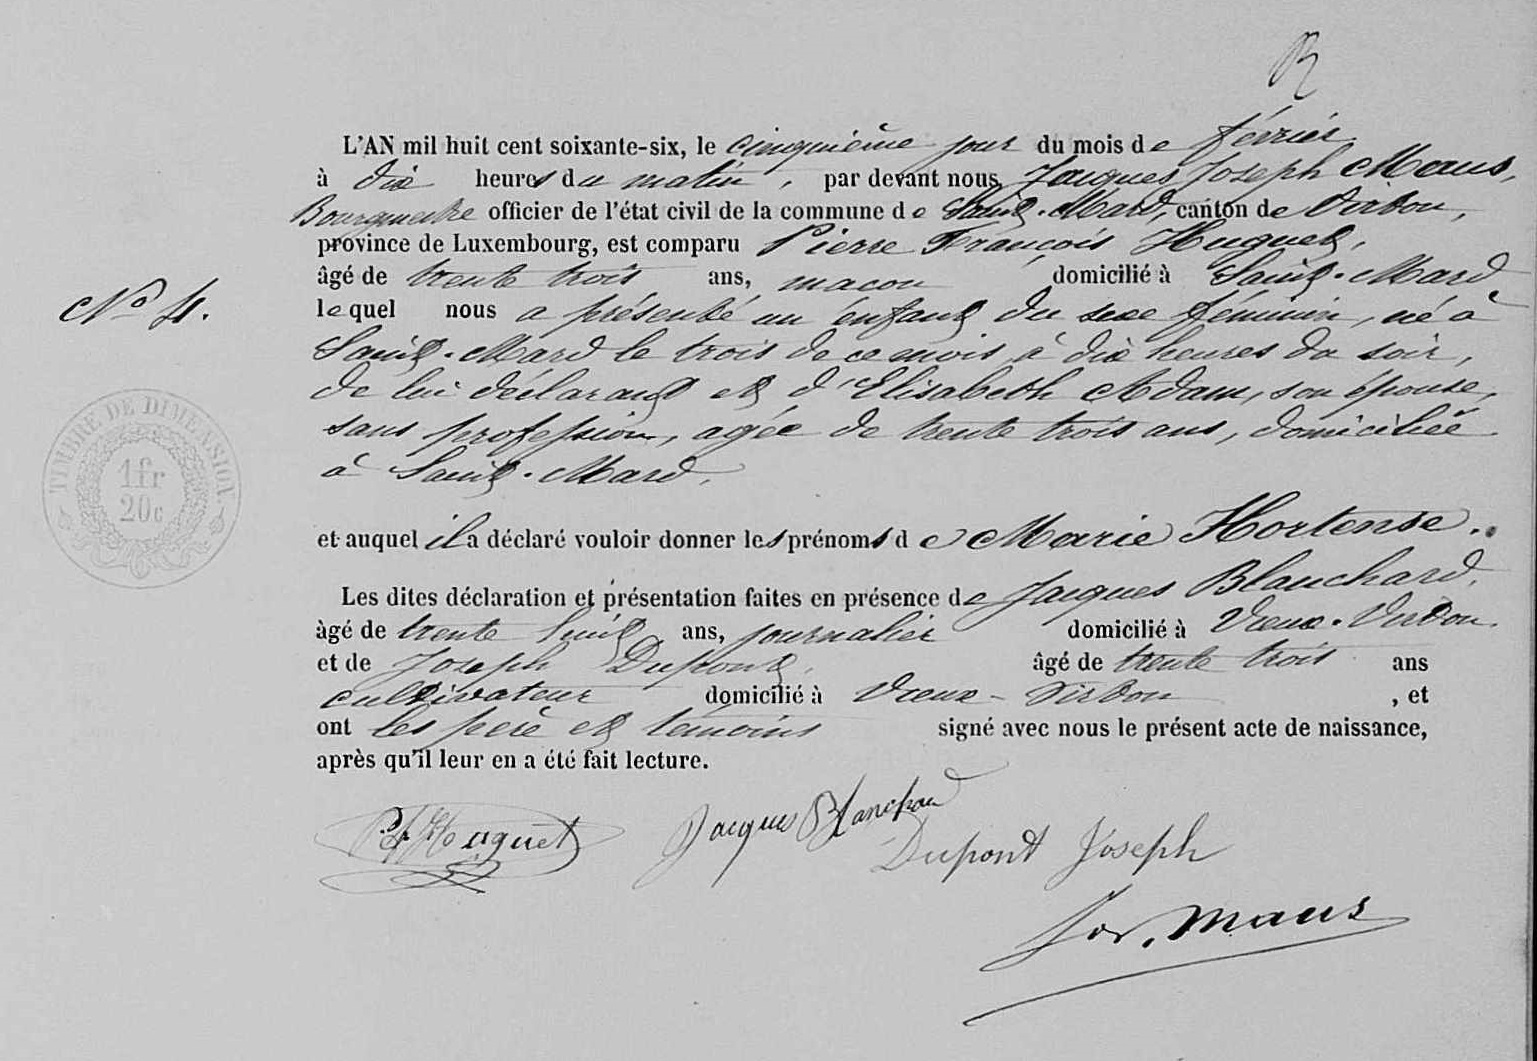 L'AN mil huit cent soixante-six, le cinquième jour du mois de février
à dix heures du matin, par devant nous Jacques Joseph Maus,
Bourgmestre officier de l'état civil de la commune de Saint-Mard, canton de Virton,
province de Luxembourg, est comparu Pierre François Huguet,
âgé de trente trois ans, macon domicilié à Saint-Mard,
lequel nous a présenté un enfant du sexe féminin, né à
N° 4.
Saint-Mard le trois de ce mois à dix heures du soir,
de lui déclarant et d'Elisabeth Adam, son épouse,
sans profession, agée de trente trois ans, domiciliée
à Saint-Mard.
TIMBRE DE DIMENSION.
1fr
20c
et auquel il a déclaré vouloir donner les prénoms de Marie Hortense.
Les dites déclaration et présentation faites en présence de Jacques Blanchard,
âgé de trente huit ans, journalier domicilié à Vieux-Virton.
et de Joseph Dupont, âgé de trente trois ans
cultivateur domicilié à Vieux-Virton , et
ont les père et témoins signé avec nous le présent acte de naissance,
après qu'il leur en a été fait lecture.
Pf Huguet Jacques Blanchard
Dupont Joseph
Jos. Maus